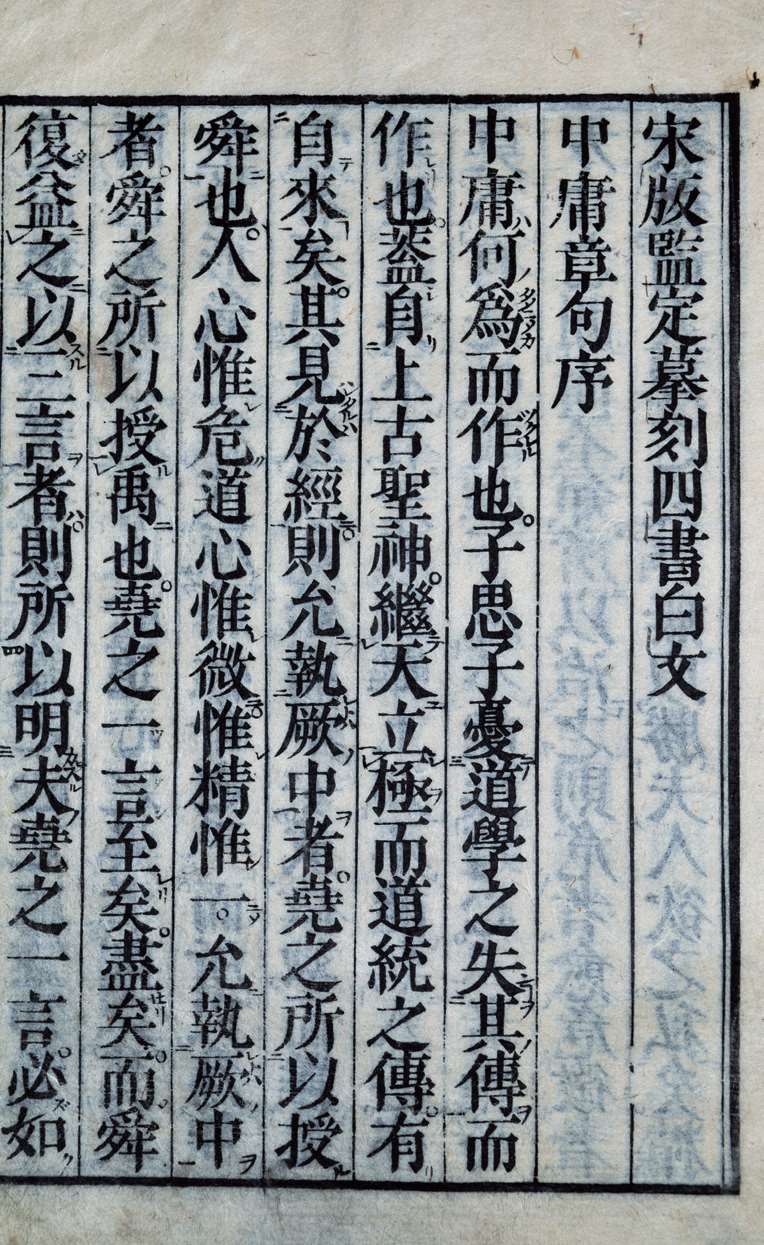 宋版監定摹刻四書白文
中庸章句序
中庸何爲而作也子思子憂道學之失其傳而
作也蓋自上古聖神繼天立極而道統之傳有
自來矣其見於經則允執厥中者堯之所以授
舜也人心惟危道心惟微惟精惟一允執厥中
者舜之所以授禹也堯之一言至矣盡矣而舜
復益之以三言者則所以明夫堯之一言必如